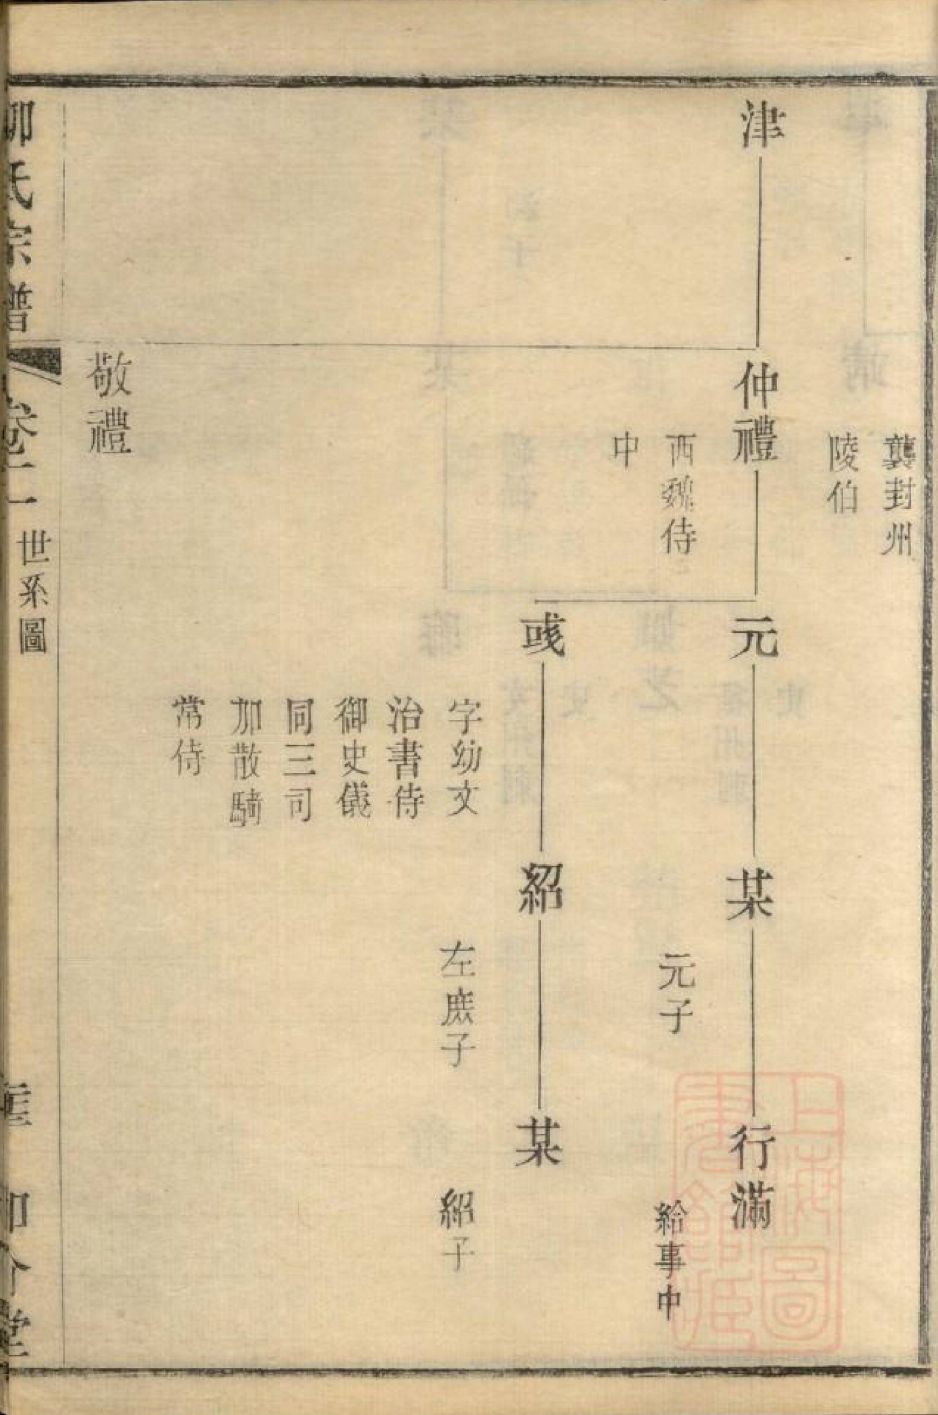 襲封州
陵伯
津
仲禮
西魏侍
中
元
某
元子
行滿
給事中
彧
字幼文
治書侍
御史儀
同三司
加散騎
常侍
紹
左庶子
某
紹子
敬禮
柳氏宗譜
卷一
世系圖
上海圖
書館藏